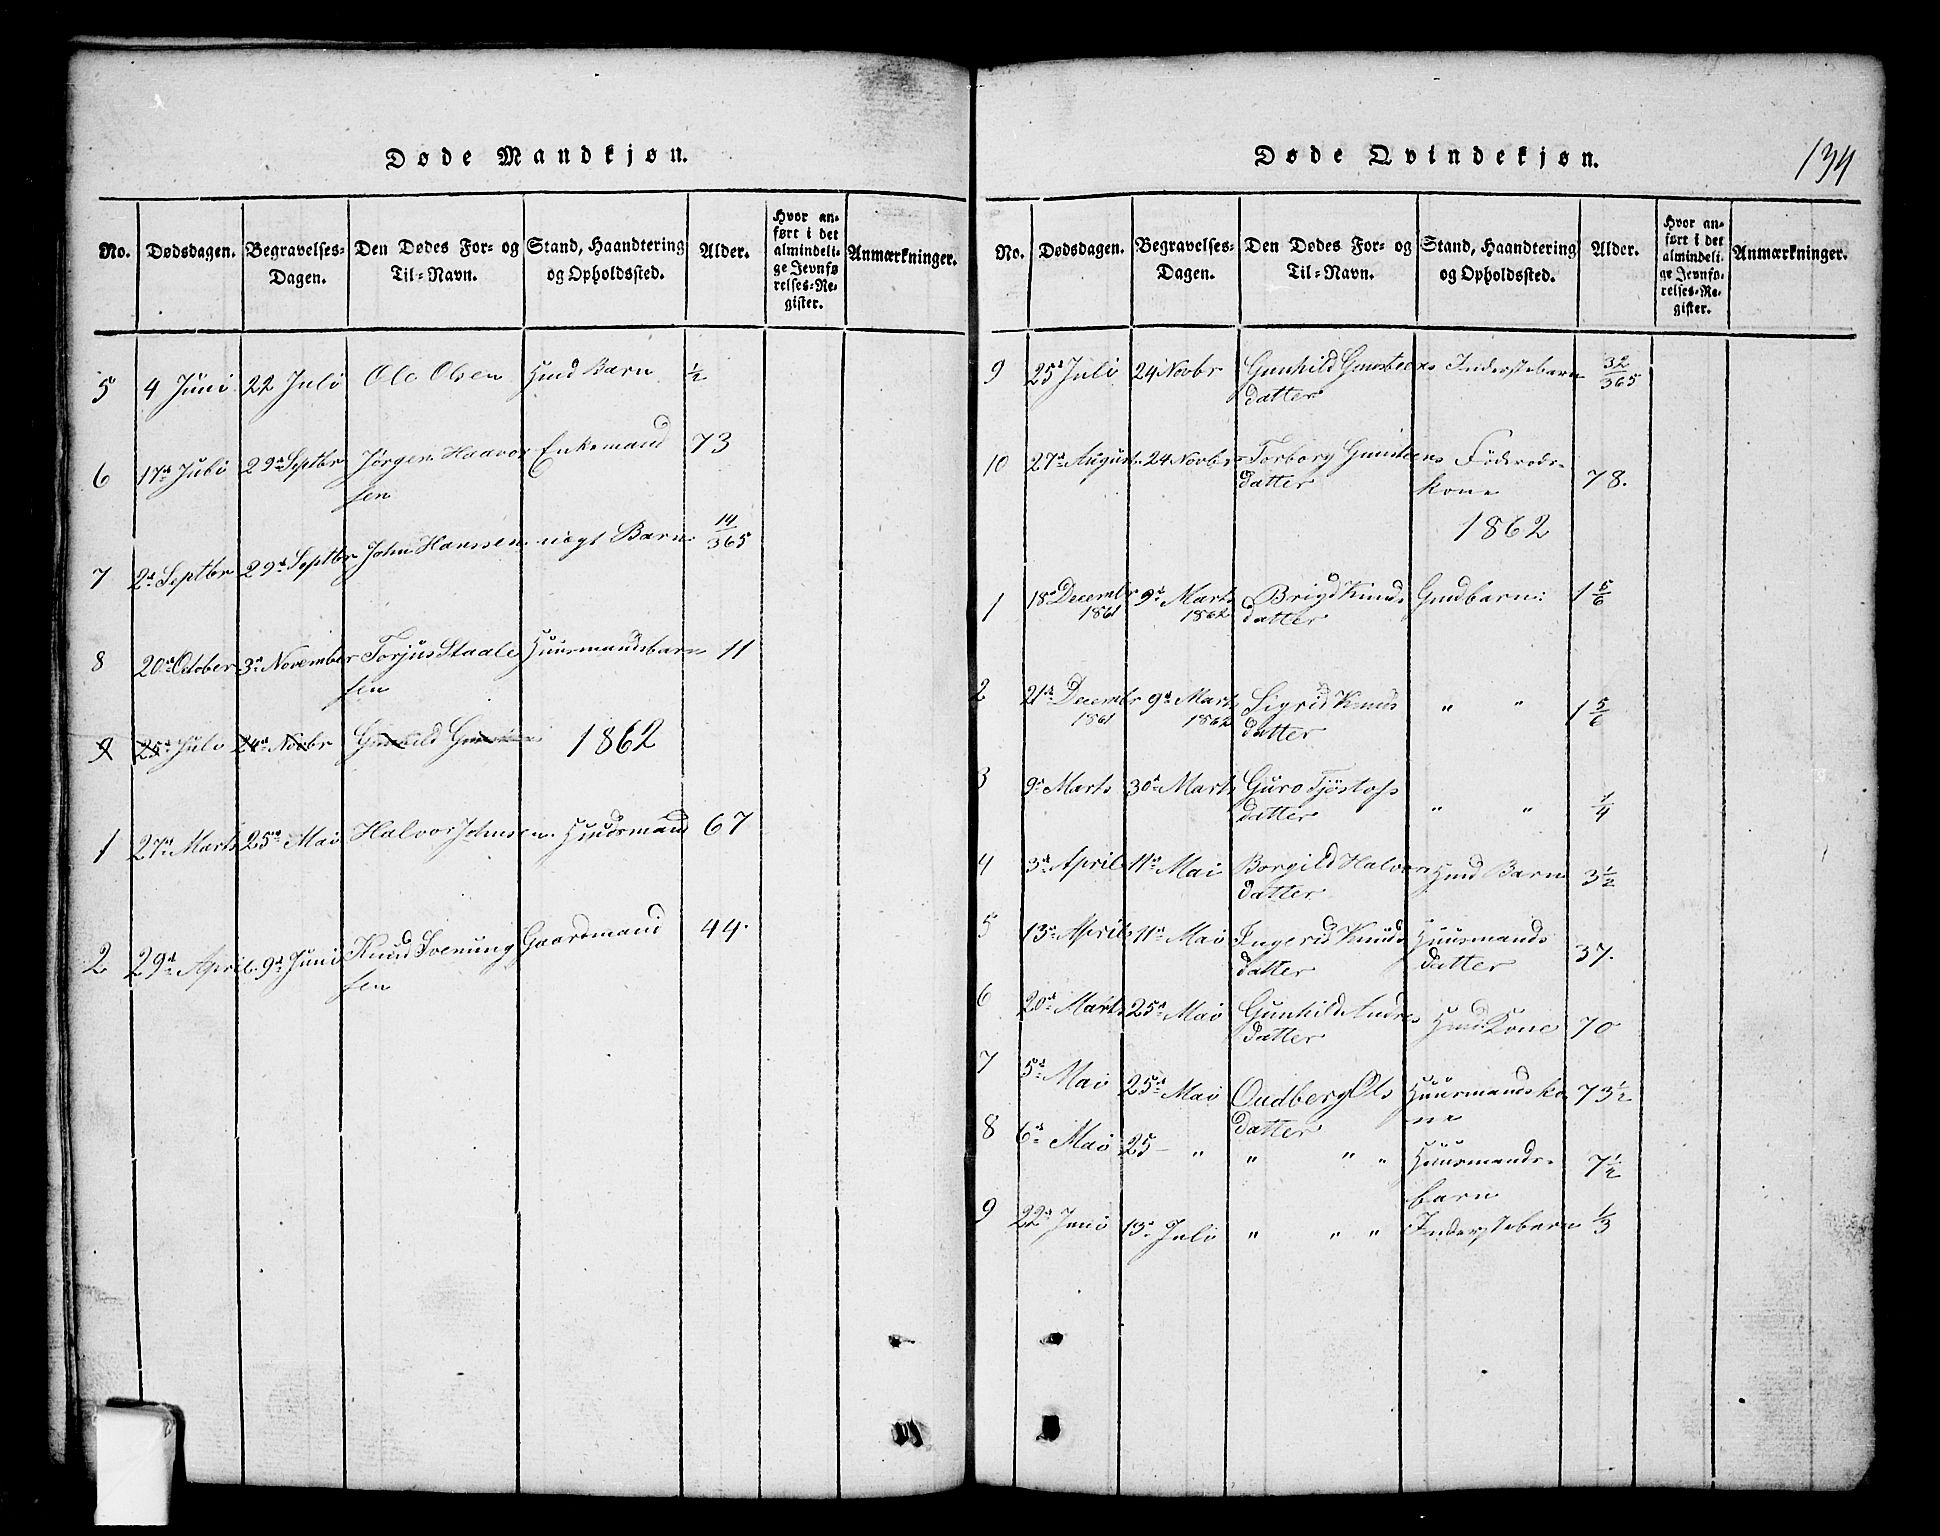 Døde Mandkjøn.
No. Dødsdagen. Begravelses-Dagen. Den Dødes For- og Til-Navn. Stand, Haandtering og Opholdssted. Alder. Hvor anført i det almindelige Jevnførelses-Register. Anmærkninger.
5 4 Juni 22 Juli Ole Olsen Hmd Barn 1/2
6 17de Juli 29de Septbr Jørgen Haavor Enkemand 73
sen
7 2d Septbr 29de Septbr John Hansen Barn 14/365
8 20de October 3de November Torjus Staale Huusmandsbarn 11
sen
9 25de Juli 24de Novbr Gunhild
1862
1 27de Marts 25de Mai Halvor Johnsen Huusmand 67
2 29de April 9de Juni Knud Svenung Gaardmand 44.
sen
Døde Qvindekjøn.
134
No. Dødsdagen. Begravelses-Dagen. Den Dødes For- og Til-Navn. Stand, Haandtering og Opholdssted. Alder. Hvor anført i det almindelige Jevnførelses-Register. Anmærkninger.
9 25d Juli 24 Novbr Gunhild Gunsteens Inderstebarn 32/365
datter
10 27de August 24 Novbr Torborg Gunsteens Føderods-
datter kone 78.
1862
1 18d Decembr 9d Marts Brigd Knuds Gmdbarn: 1 5/6
1861 1862 datter
2 21de Decembr 9d Marts Sigrid Knuds " " 1 5/6
1861 1862 datter
3 9d Marts 30de Marts Guro Tjøstofs " " 1/4
datter
4 3de April 11de Mai Borgild Halvors Hmd Barn 3 1/2
datter
5 13de April 11de Mai Ingerid Knuds Huusmands 37.
datter datter
6 20de Marts 25de Mai Gunhild Andres Hmd Kone 70
datter
7 5de Mai 25de Mai Oudberg Ols Huusmandsko 73 1/2
datter ne
8 6de Mai 25 – " " " " Huusmands- 7 1/2
barn
9 22de Juni 13de Juli " " " Inderstebarn 1/3